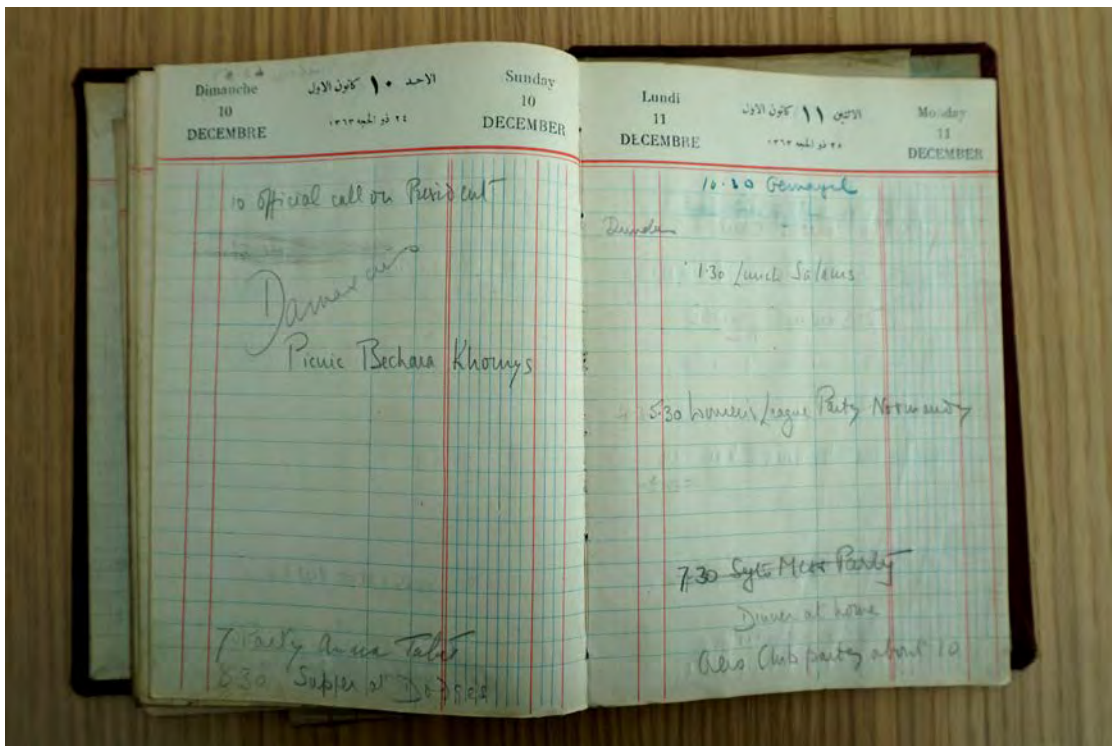 Dimanche
10
DECEMBRE
الاحد ١٠ كانون الاول
٢٤ ذو الحجه ١٣٦٣
Sunday
10
DECEMBER
10 Official call on President
Picnic Bechara Khourys
7 Party Tabet
8.30 Supper at
Lundi
11
DECEMBRE
الاثنين ١١ كانون الاول
٢٥ ذو الحجه ١٣٦٣
Monday
11
DECEMBER
10.30 Gemayel
1.30 Lunch Salams
5.30 Women's League Party Normandy
7.30 Party
Dinner at home
Aero Club party about 10